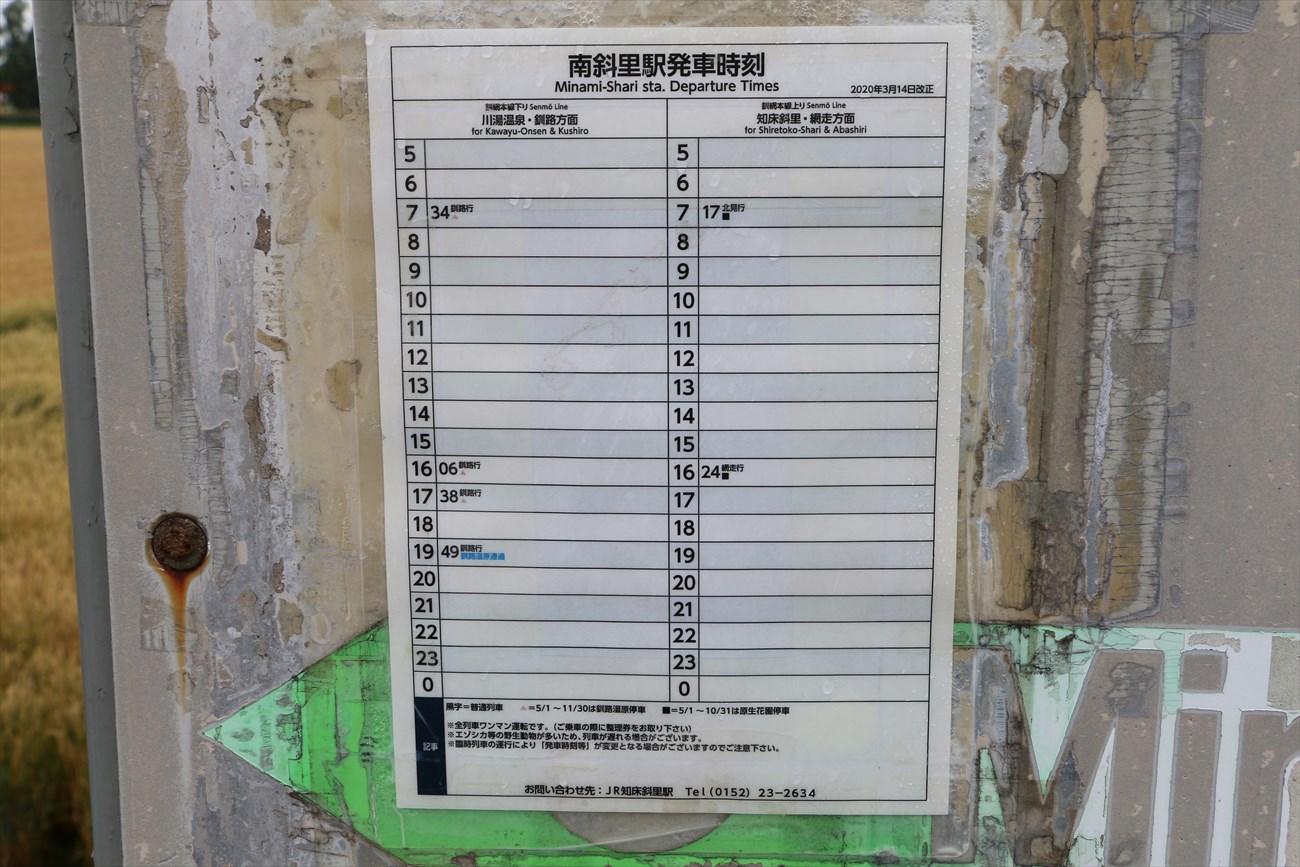 南斜里駅発車時刻
Minami-Shari sta. Departure Times
2020年3月14日改正
釧網本線下り Senmō Line
川湯温泉・釧路方面
for Kawayu-Onsen & Kushiro
釧網本線上り Senmō Line
知床斜里・網走方面
for Shiretoko-Shari & Abashiri
5 5
6 6
7 34 釧路行 ▲ 7 17 北見行 ■
8 8
9 9
10 10
11 11
12 12
13 13
14 14
15 15
16 06 釧路行 ▲ 16 24 網走行 ■
17 38 釧路行 ▲ 17
18 18
19 49 釧路行 釧路湿原通過 19
20 20
21 21
22 22
23 23
0 0
記事
黒字=普通列車 ▲=5/1～11/30は釧路湿原停車 ■=5/1～10/31は原生花園停車
※全列車ワンマン運転です。(ご乗車の際に整理券をお取り下さい)
※エゾシカ等の野生動物が多いため、列車が遅れる場合がございます。
※臨時列車の運行により「発車時刻等」が変更となる場合がございますのでご注意下さい。
お問い合わせ先：JR知床斜里駅 Tel(0152) 23-2634
Min